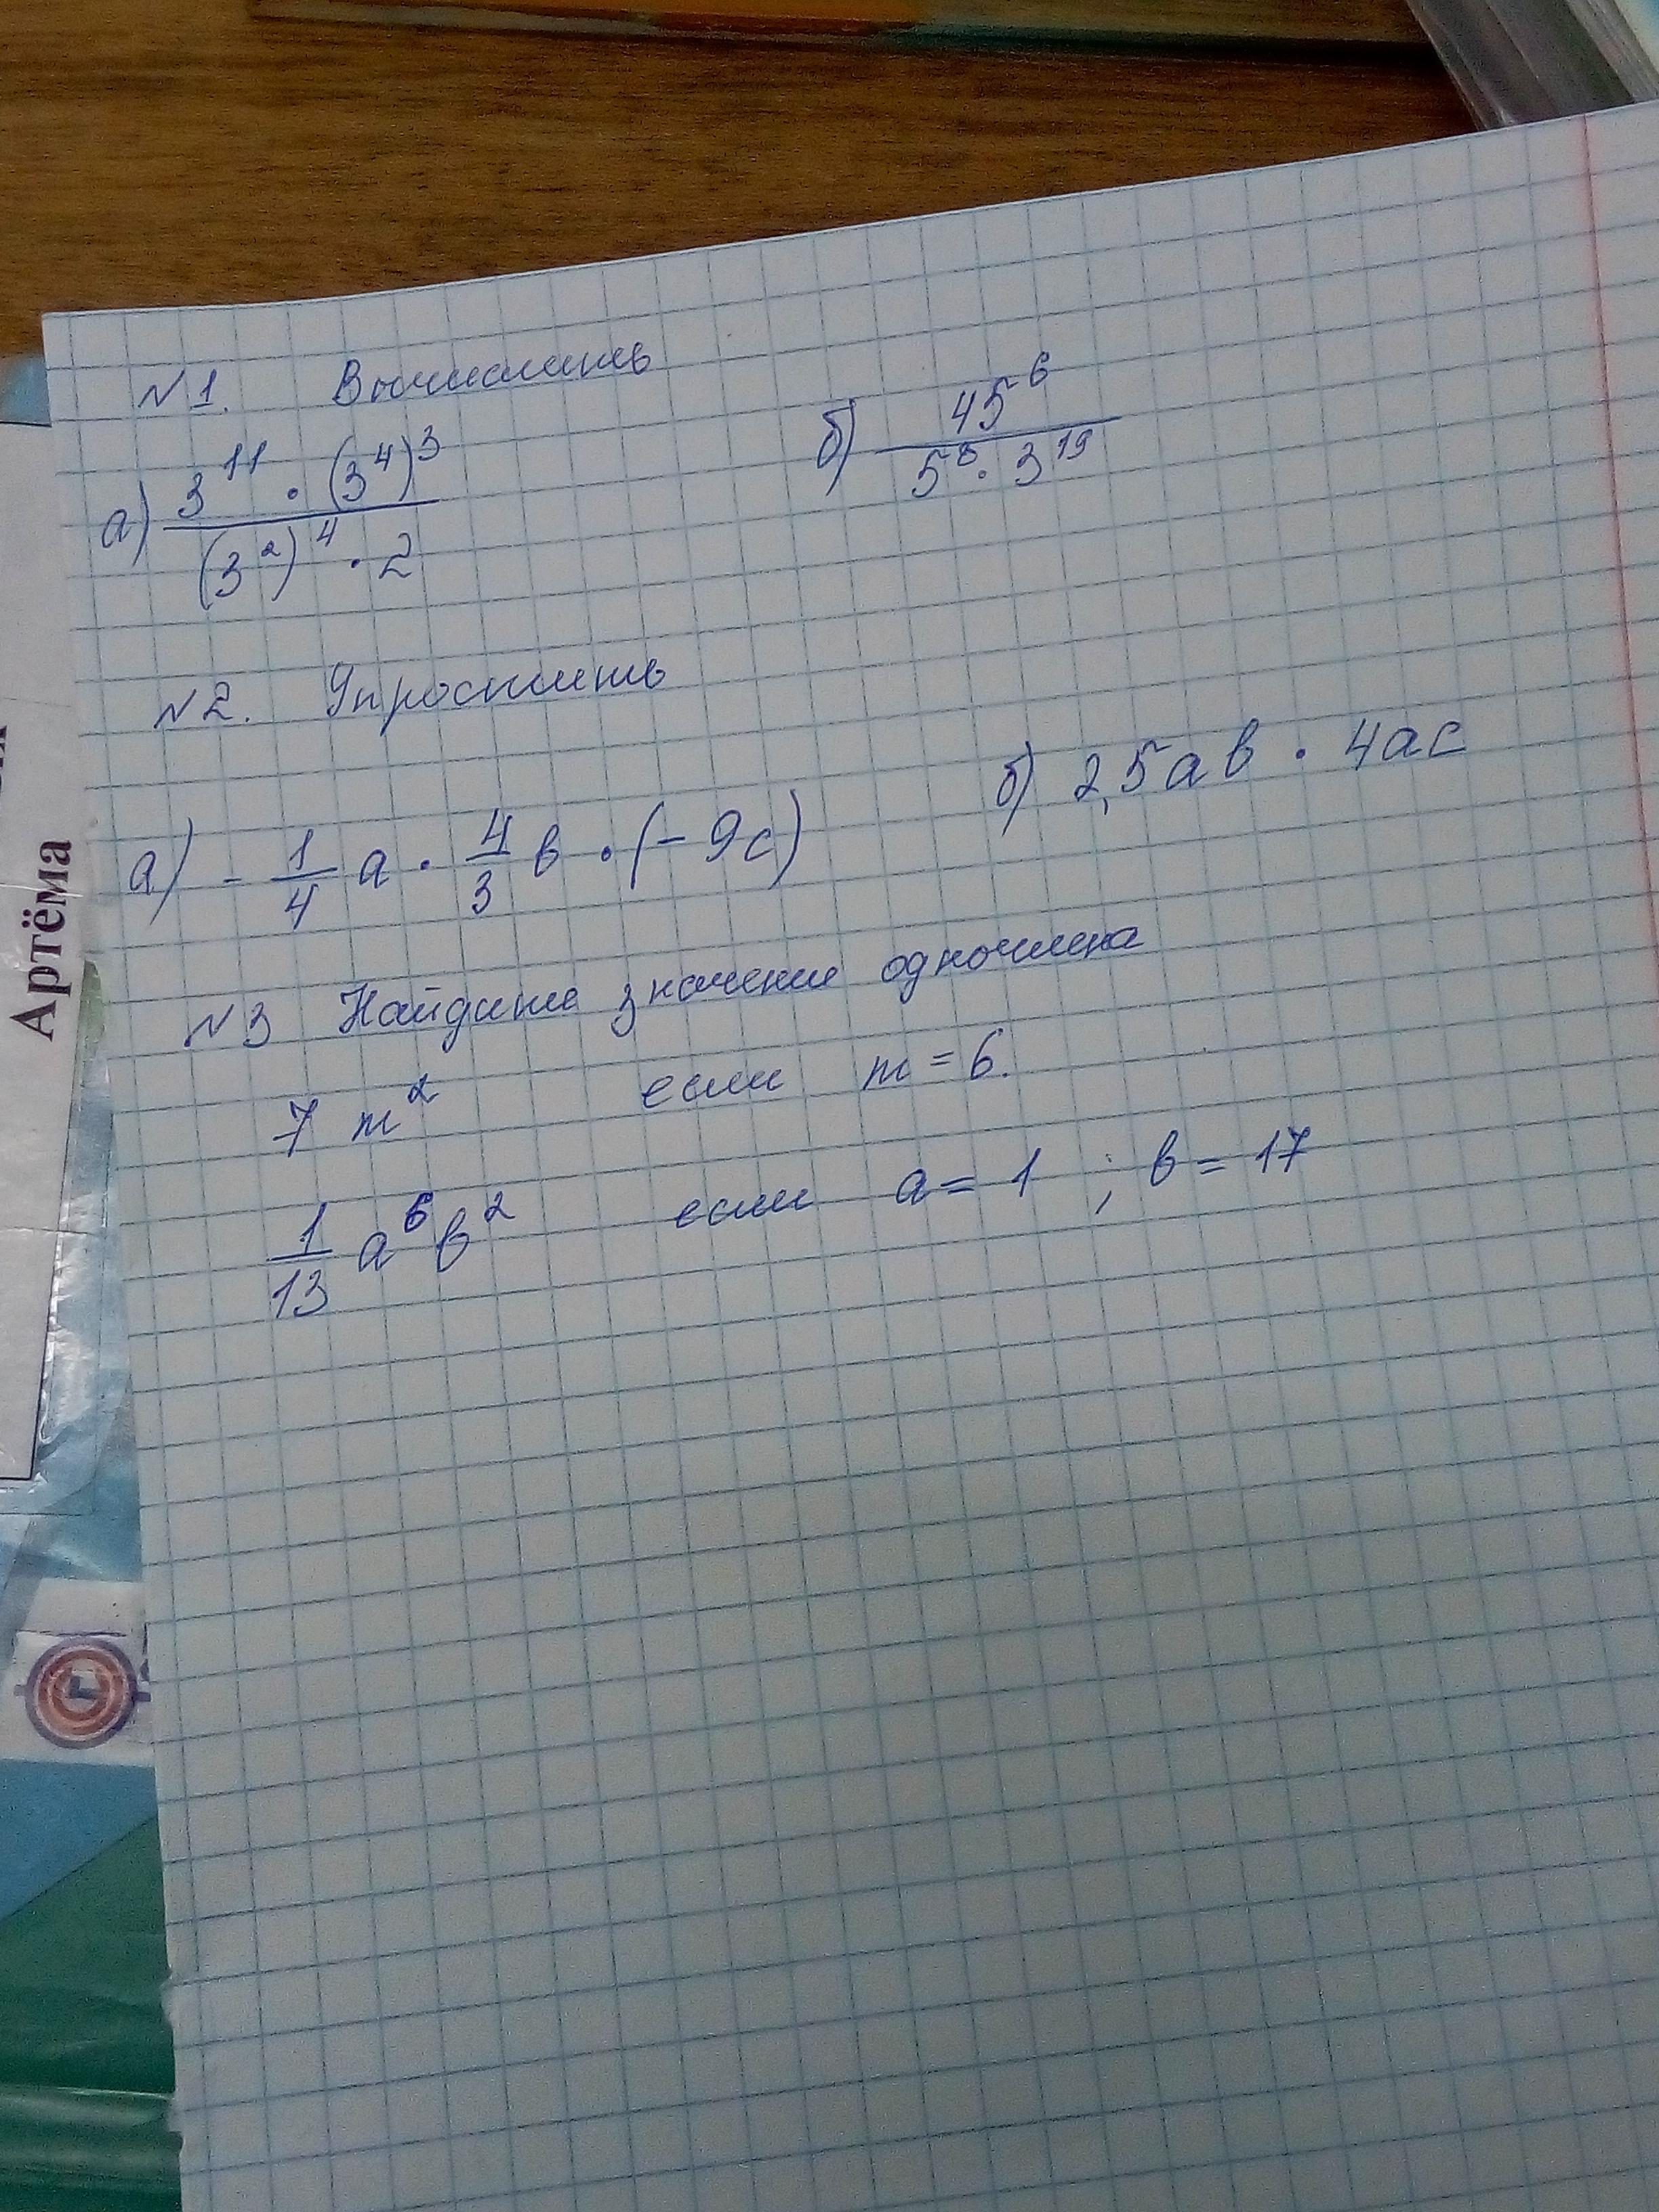 №1. Вычислить
а) \frac{3^{11} \cdot (3^4)^3}{(3^2)^4 \cdot 2} б) \frac{45^6}{5^8 \cdot 3^{19}}
№2. Упростить
а) - \frac{1}{4} а \cdot \frac{4}{3} в \cdot (-9с) б) 2,5ав \cdot 4ас
№3 Найдите значение одночлена
7 m^2 если m = 6.
\frac{1}{13} а^6 в^2 если а = 1 ; в = 17
Артёма